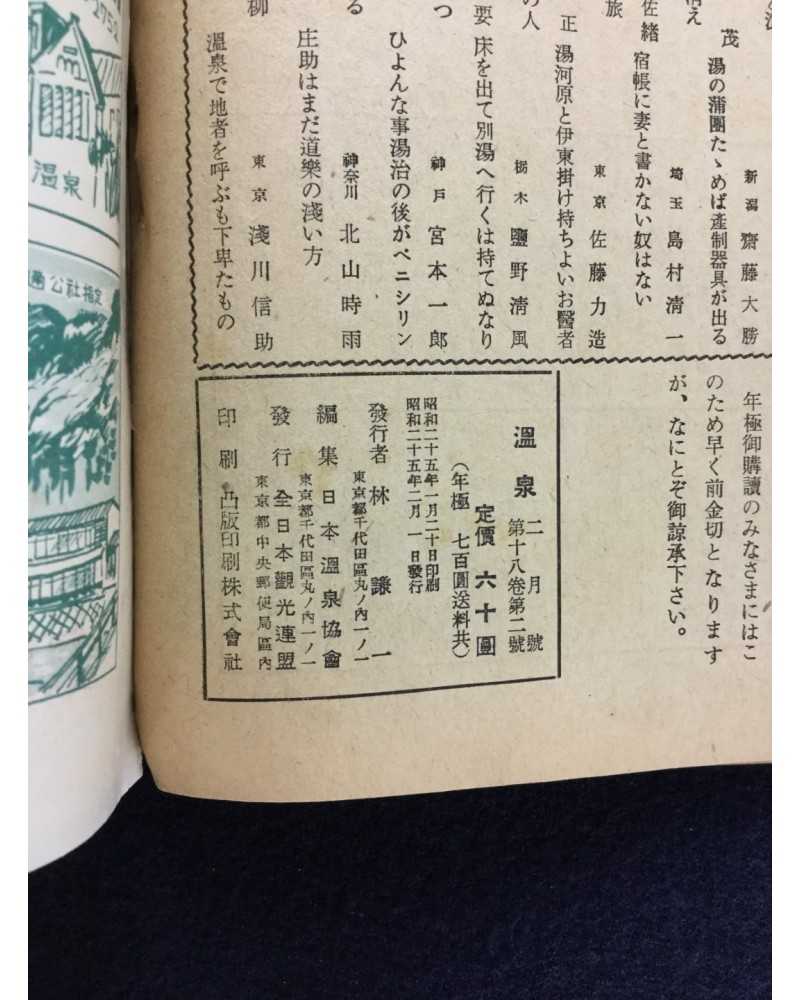 茂
湯の蒲團たゝめば產制器具が出る
新潟 齋藤大勝
佐緒
宿帳に妻と書かない奴はない
埼玉 島村淸一
旅
正
湯河原と伊東掛け持ちよいお醫者
東京 佐藤力造
の人
要
床を出て別湯へ行くは持てぬなり
栃木 鹽野淸風
つ
ひよんな事湯治の後がペニシリン
神戸 宮本一郎
る
庄助はまだ道樂の淺い方
神奈川 北山時雨
柳
溫泉で地者を呼ぶも下卑たもの
東京 淺川信助
年極御購讀のみなさまにはこ
のため早く前金切となります
が、なにとぞ御諒承下さい。
溫泉 二月號
第十八卷第二號
定價 六十圓
(年極 七百圓送料共)
昭和二十五年一月二十日印刷
昭和二十五年二月一日發行
發行者 林謙一
東京都千代田區丸ノ內一ノ一
編集 日本溫泉協會
東京都千代田區丸ノ內一ノ一
發行 全日本觀光連盟
東京都中央郵便局區內
印刷 凸版印刷株式會社
溫泉
公社指定